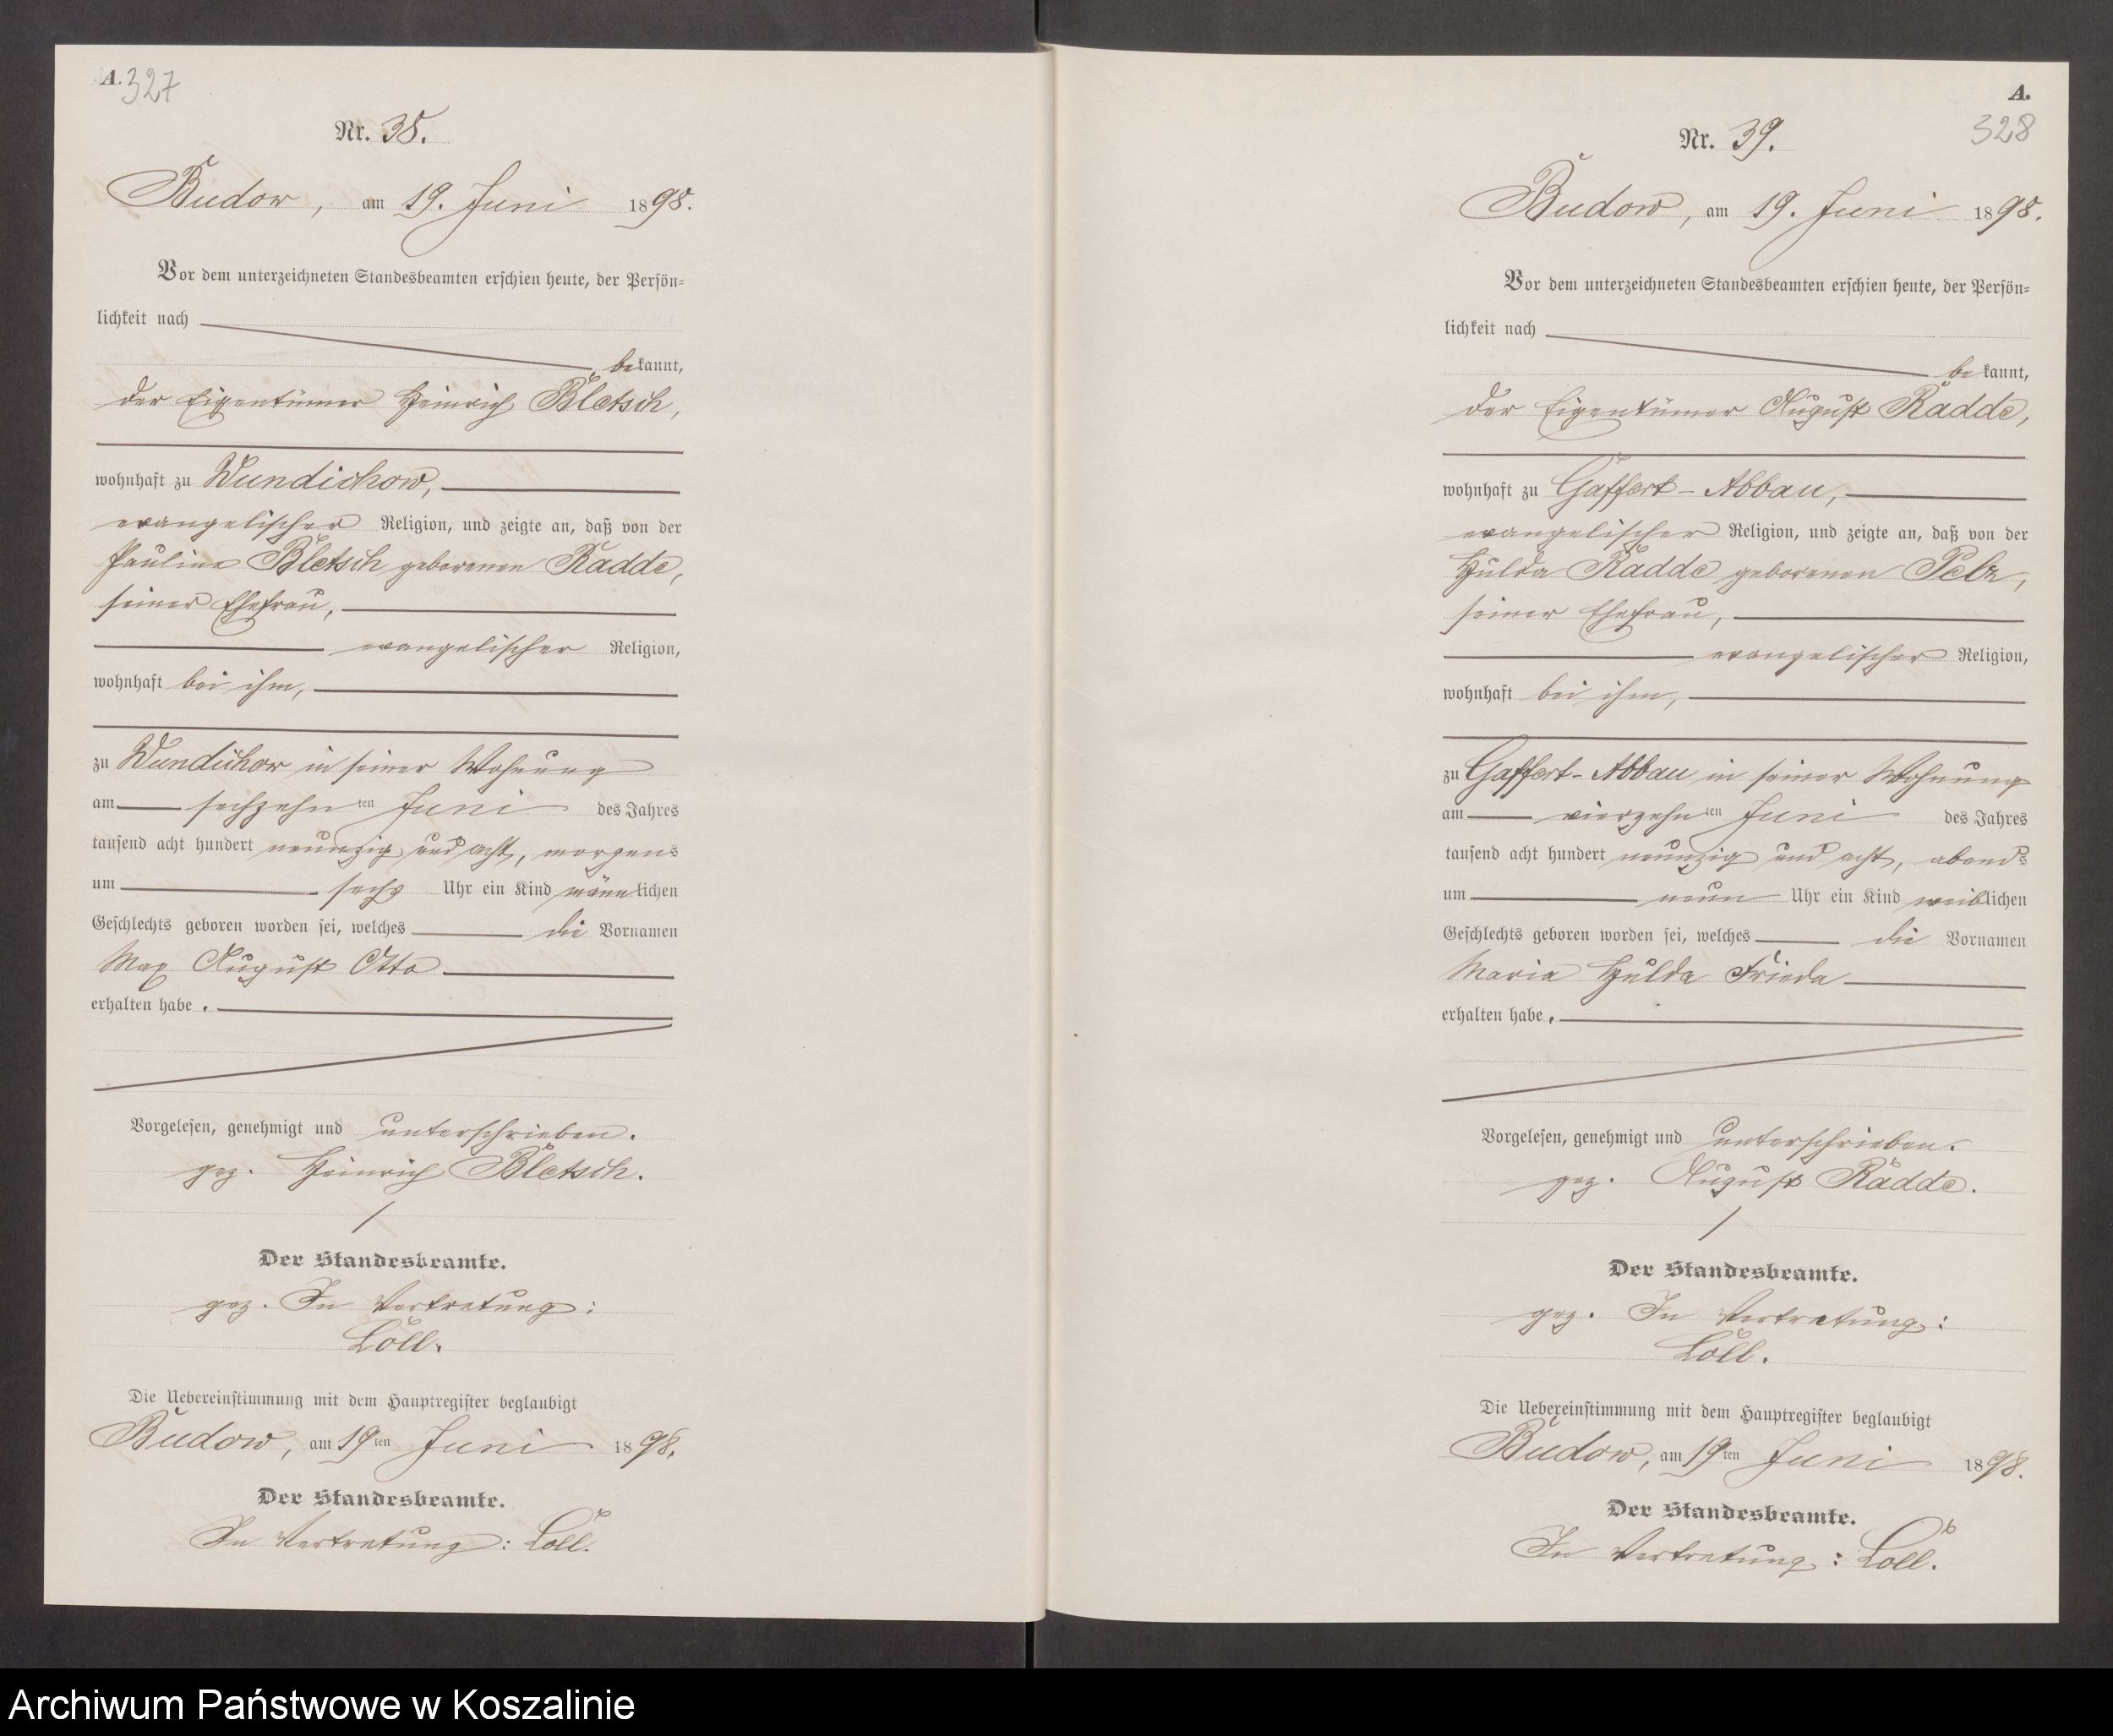 A. 327
Nr. 38.
Budow, am 19. Juni 1898.
Vor dem unterzeichneten Standesbeamten erschien heute, der Persön-
lichkeit nach
bekannt,
der Eigentümer Heinrich Bletsch,
wohnhaft zu Wundichow,
evangelischer Religion, und zeigte an, daß von der
Pauline Bletsch geborenen Radde,
seiner Ehefrau,
evangelischer Religion,
wohnhaft bei ihm,
zu Wundichow in seiner Wohnung
am sechzehnten Juni des Jahres
tausend acht hundert neunzig und acht, morgens
um sechs Uhr ein Kind männlichen
Geschlechts geboren worden sei, welches die Vornamen
Max August Otto
erhalten habe.
Vorgelesen, genehmigt und unterschrieben.
gez. Heinrich Bletsch.
Der Standesbeamte.
gez. In Vertretung:
Loll.
Die Uebereinstimmung mit dem Hauptregister beglaubigt
Budow, am 19ten Juni 1898.
Der Standesbeamte.
In Vertretung: Loll.
A.
328
Nr. 39.
Budow, am 19. Juni 1898.
Vor dem unterzeichneten Standesbeamten erschien heute, der Persön-
lichkeit nach
bekannt,
der Eigentümer August Radde,
wohnhaft zu Gaffert-Abbau,
evangelischer Religion, und zeigte an, daß von der
Hulda Radde geborenen Pelz,
seiner Ehefrau,
evangelischer Religion,
wohnhaft bei ihm,
zu Gaffert-Abbau in seiner Wohnung
am vierzehnten Juni des Jahres
tausend acht hundert neunzig und acht, abends
um neun Uhr ein Kind weiblichen
Geschlechts geboren worden sei, welches die Vornamen
Maria Hulda Frieda
erhalten habe.
Vorgelesen, genehmigt und unterschrieben.
gez. August Radde.
Der Standesbeamte.
gez. In Vertretung:
Loll.
Die Uebereinstimmung mit dem Hauptregister beglaubigt
Budow, am 19ten Juni 1898.
Der Standesbeamte.
In Vertretung: Loll.
Archiwum Państwowe w Koszalinie